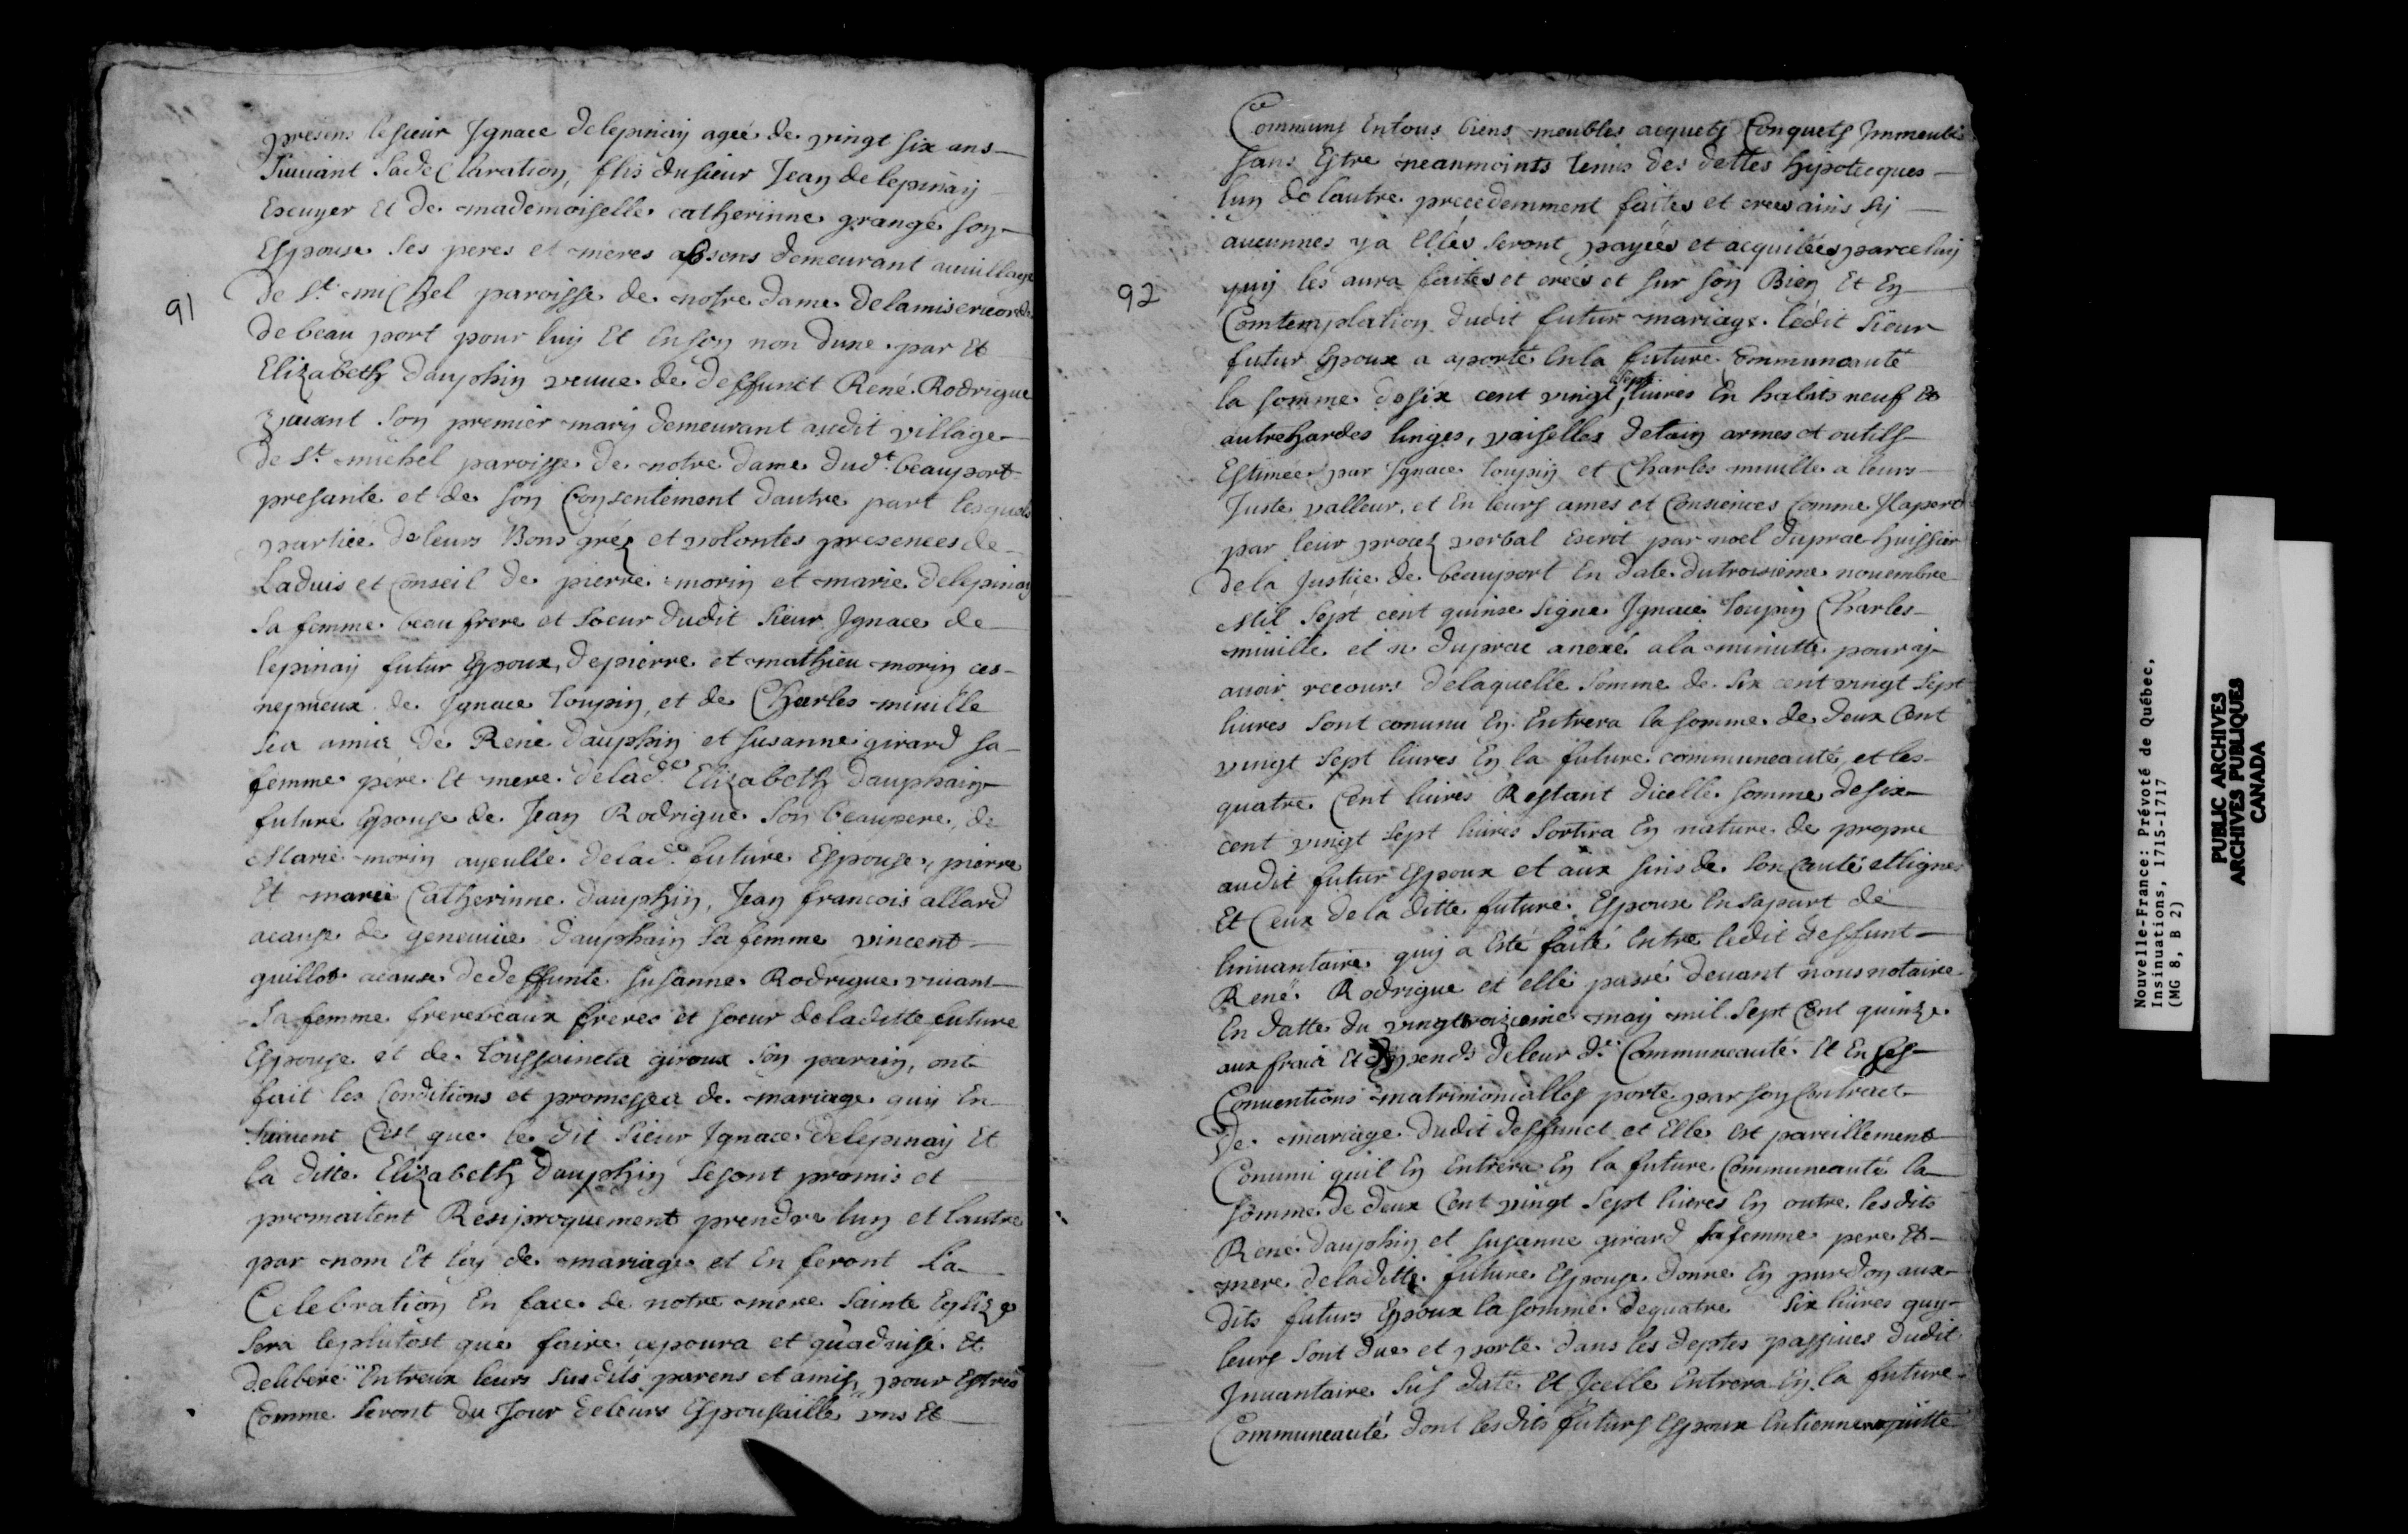 91
presens le sieur Ignace delepinay ageé de vingt six ans
suiuant sa declaration, fils du sieur Jean de lepinay
Escuyer et de mademoiselle catherinne grangé son
Espouse ses peres et meres absens demeurant auuillage
de St michel paroisse de notre dame delamisericorde
de beau port pour luy Et En son non dune par Et
Elizabeth dauphin veuue de deffunct René Rodrigue
viuant son premier mary demeurant audit village
de St michel paroisse de notre dame dudt beauport
presante et de son Consentement dautre part lesquels
partiee de leurs Bons gréz et volontés presences de
Laduis et Conseil de pierre morin et marie delepinay
sa femme beau frere et soeur dudit sieur Ignace de
lepinay futur Epoux, de pierre et mathieu morin ces
nepueux de Ignace toupin, et de Charles miuille
ses amis de René dauphin et susanne girard sa
femme pere Et mere delade Elizabeth Dauphain
future Epouse de Jean Rodrigue son beaupere, de
Marie morin ayeulle delade future Espouse, pierre
Et marie Catherinne dauphin, Jean francois allard
acause de geneuiue dauphain sa femme vincent
guillot acause dedeffunte susanne Rodrigue viuant
sa femme frerebeaux freres et soeur deladitte future
Espouse et de toussaincta giroux son parain, ont
fait les Conditions et promesses de mariage quy En
suiuent C'est que le dit sieur Ignace delepinay Et
la ditte Elizabeth dauphin sesont promis et
promaitent Resiproquement prendre lun et lautre
par nom Et loy de mariage et En feront La
Celebration En face de notre mere sainte Eglize
sera leplutost que faire cepoura et qu'aduisé Et
deliberé Entreux leurs susdits parens et amis, pour Estres
Comme seront du Jour deleurs Espousaille vns Et
92
Communs Entous biens meubles acquets Conquets Immeubles
sans Estre neanmoints tenus des dettes hipotecques
lun de lautre precedemment faites et crees ains sy
aucunnes y a Elles seront payées et acquitées parceluy
quy les aura faites et crées et sur son Bien Et En
Comtemplation dudit futur mariage ledit sieur
futur Epoux a aporté En la future Communeauté
la somme de six cent vingt sept liures En habits neuf Et
autrehardes linges, vaiselles detain armes et outils
Estimée par Ignace toupin et Charles miuille a leurs
Juste valleur, et En leurs ames et Consiences Comme Ilapert
par leur procez verbal Escrit par noel duprac huissier
de la Justice de beauport En date du troisieme nouembre
Mil sept cent quinse signe Ignace toupin Charles
miuille et n duprac anexé ala minutte pour y
auoir recours delaquelle somme de six cent vingt sept
liures sont conuenu En Entrera la somme de deux Cent
vingt sept liures En la future communeauté, et les
quatre Cent liures Restant dicelle somme de six
cent vingt sept liures sortira En nature de propre
audit futur Espoux et aux siens de son Cauté etligne
Et Ceux de la ditte future Espouse En sapart de
linuantaire quy a Esté faite Entre ledit deffunt
René Rodrigue et elle passé deuant nous notaire
En datte du vingtroizieme may mil sept Cent quinze
aux frais Et depends de leur de Communeauté Et En ses
Conuentions matrimonialles porte par son Contract
de mariage dudit deffunct et Elle Est pareillement
Conuenu quil En Entrera En la future Communeauté la
somme de deux Cent vingt sept liures En outre lesdits
René dauphin et susanne girard sa femme pere Et
mere deladitte future Espouse donne En pur don aux
dits futurs Epoux la somme dequatre six liures quy
leurs sont due et porté dans les deptes passiues dudit
Inuantaire sus daté Et Icelle Entrera En la future
Communeauté dont lesdits futurs Espoux Entienne quitte
Nouvelle-France: Prévoté de Québec,
Insinuations, 1715-1717
(MG 8, B 2)
PUBLIC ARCHIVES
ARCHIVES PUBLIQUES
CANADA